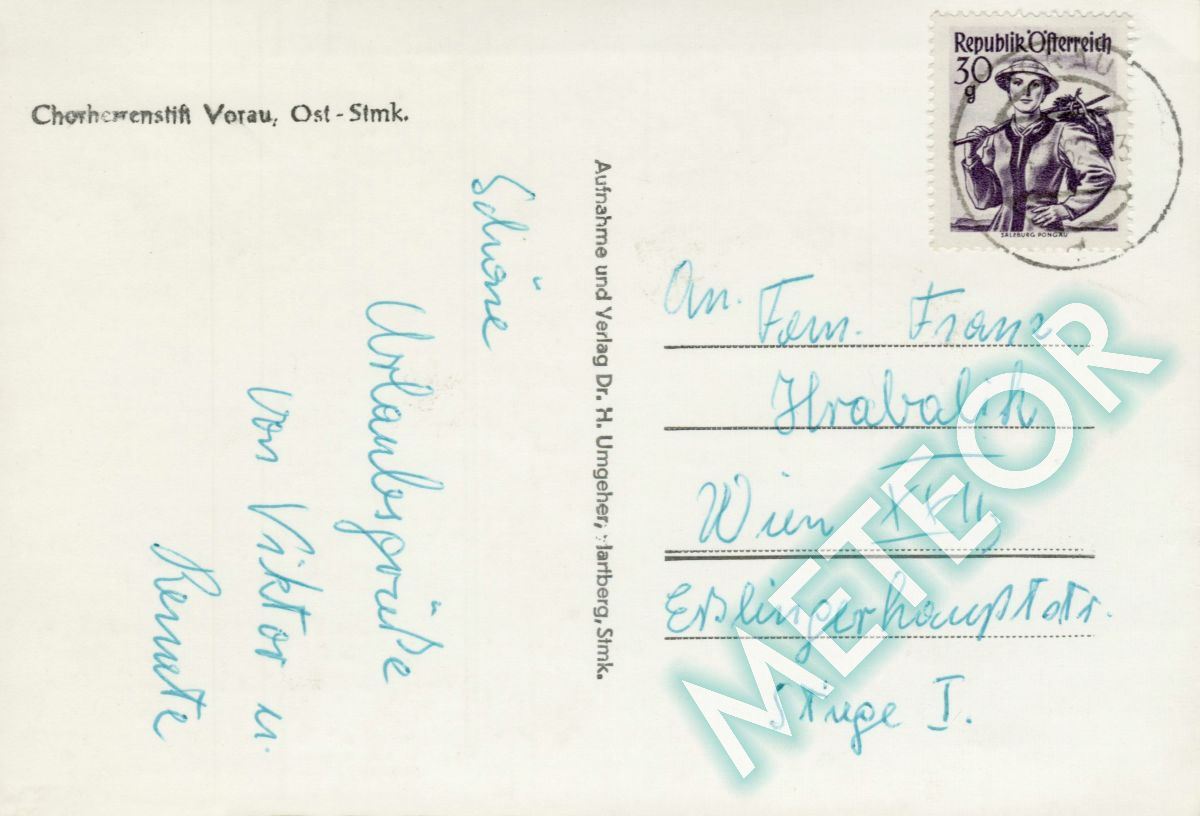 Chorherrenstift Vorau, Ost-Stmk.
Republik Österreich
30
g
SALZBURG PONGAU
Schöne
Urlaubsgrüße
von Viktor u.
Renate
Aufnahme und Verlag Dr. H. Umgeher, Hartberg, Stmk.
An. Fam. Franz
Hrabalik
Wien XXII
Eßlingerhauptstr.
Stiege I.
METEOR